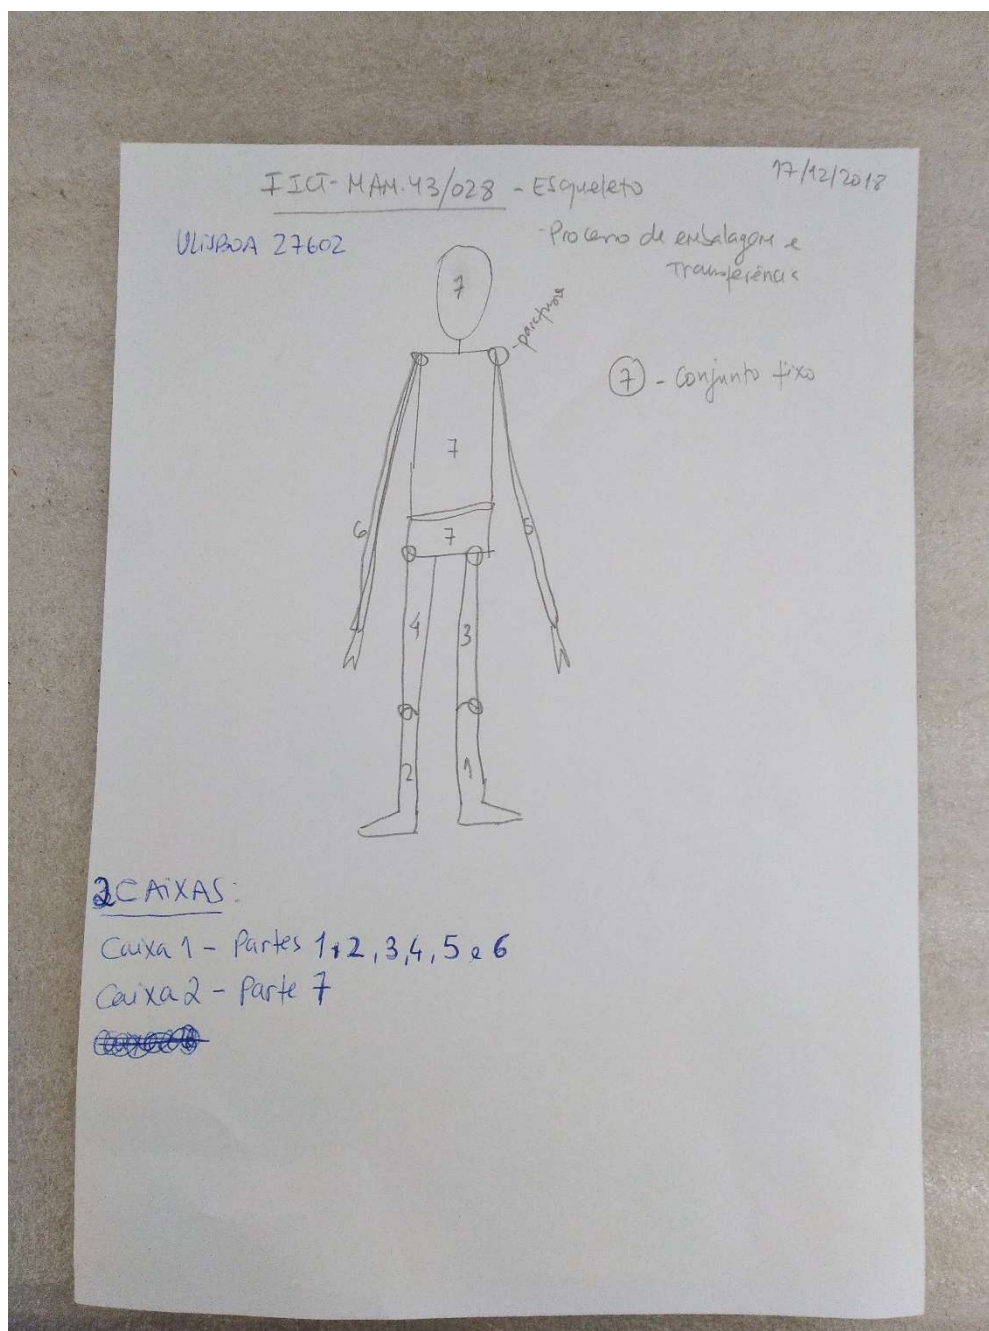 IICT-MAM.43/028 - Esqueleto
17/12/2018
ULISBOA 27602
- Processo de embalagem e
Transferência
7
- parafuso
7 - Conjunto fixo
7
6
5
7
4
3
2
1
2 CAIXAS:
Caixa 1 - Partes 1, 2, 3, 4, 5 e 6
Caixa 2 - Parte 7